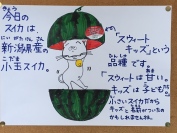 今日の
スイカは、
新潟県産の
小玉スイカ。
「スウィート
キッズ」という
品種です。
「スウィートは甘い。
キッズは子ども」
小さいスイカだから
キッズと名前がついたの
かもしれませんね。